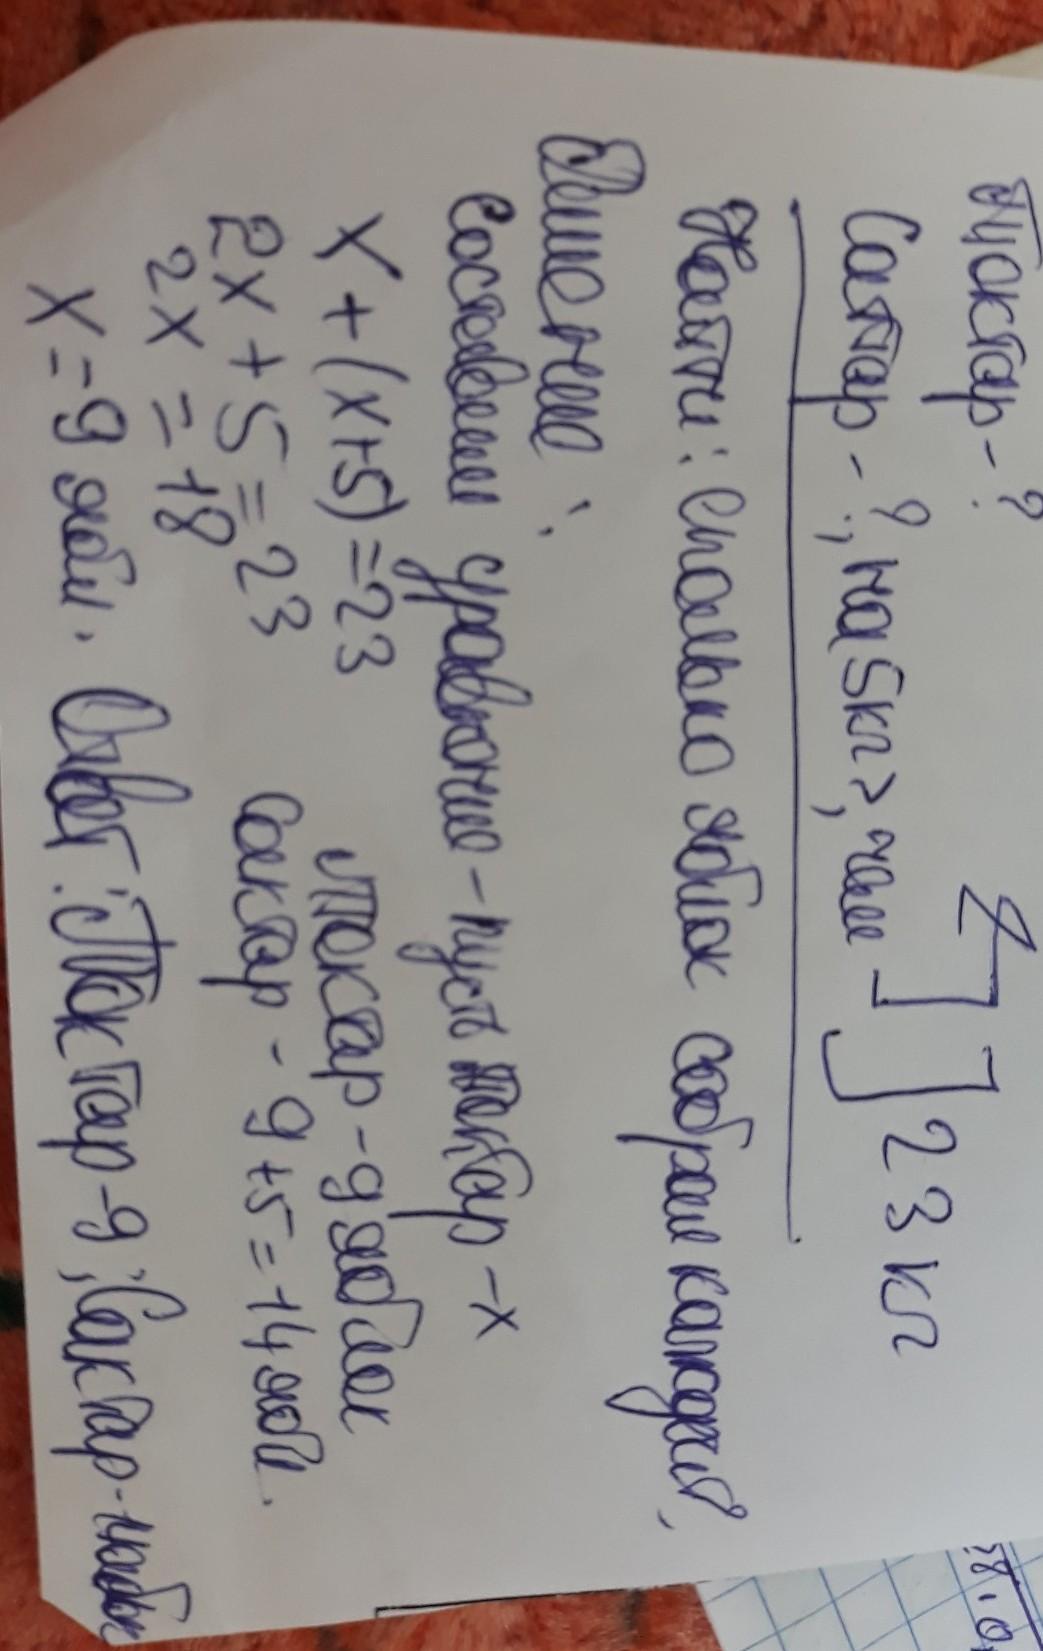 Токтар - ?
Саттар - ?, на 5кг >, чем ] ] 23 кг
Найти: сколько яблок собрал каждый?
Решение:
Составим уравнение - пусть Токтар - x
x + (x+5) = 23
2x + 5 = 23
2x = 18
x = 9 ябл.
Токтар - 9 яблок
Сактар - 9 + 5 = 14 ябл.
Ответ: Токтар - 9, Сактар - 14 ябл